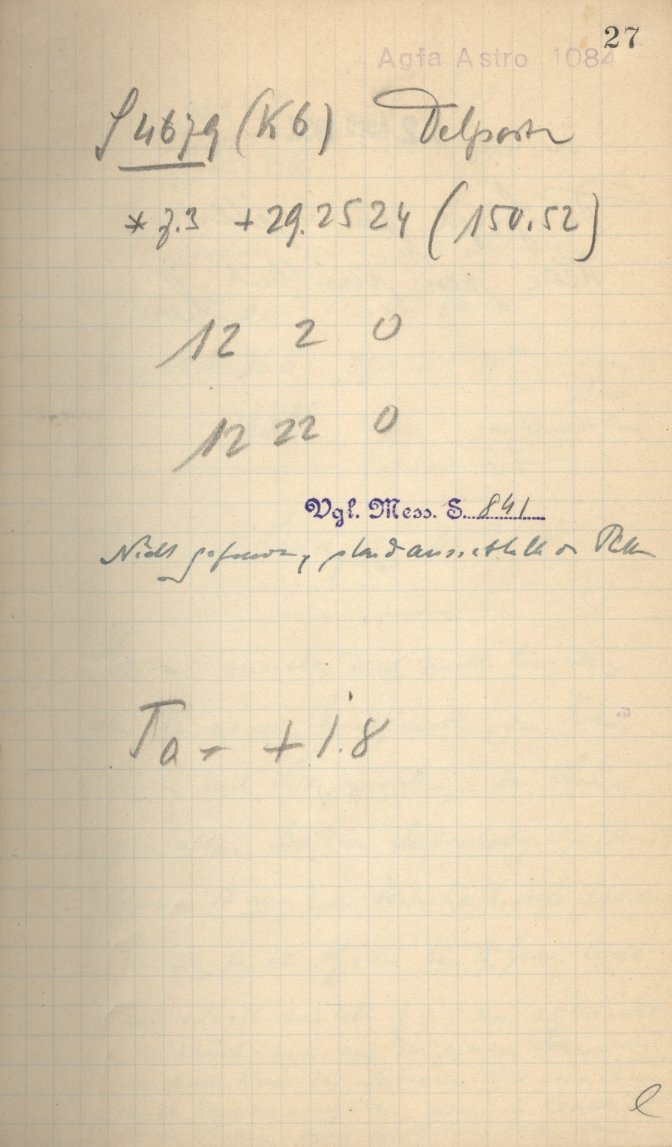 27
Agfa Astro 1084
4679 (K6) Delporte
* 7.3 +29.2524 (150.52)
12 2 0
12 22 0
Vgl. Mess. S. 841
Nicht
Ta = + 1.8